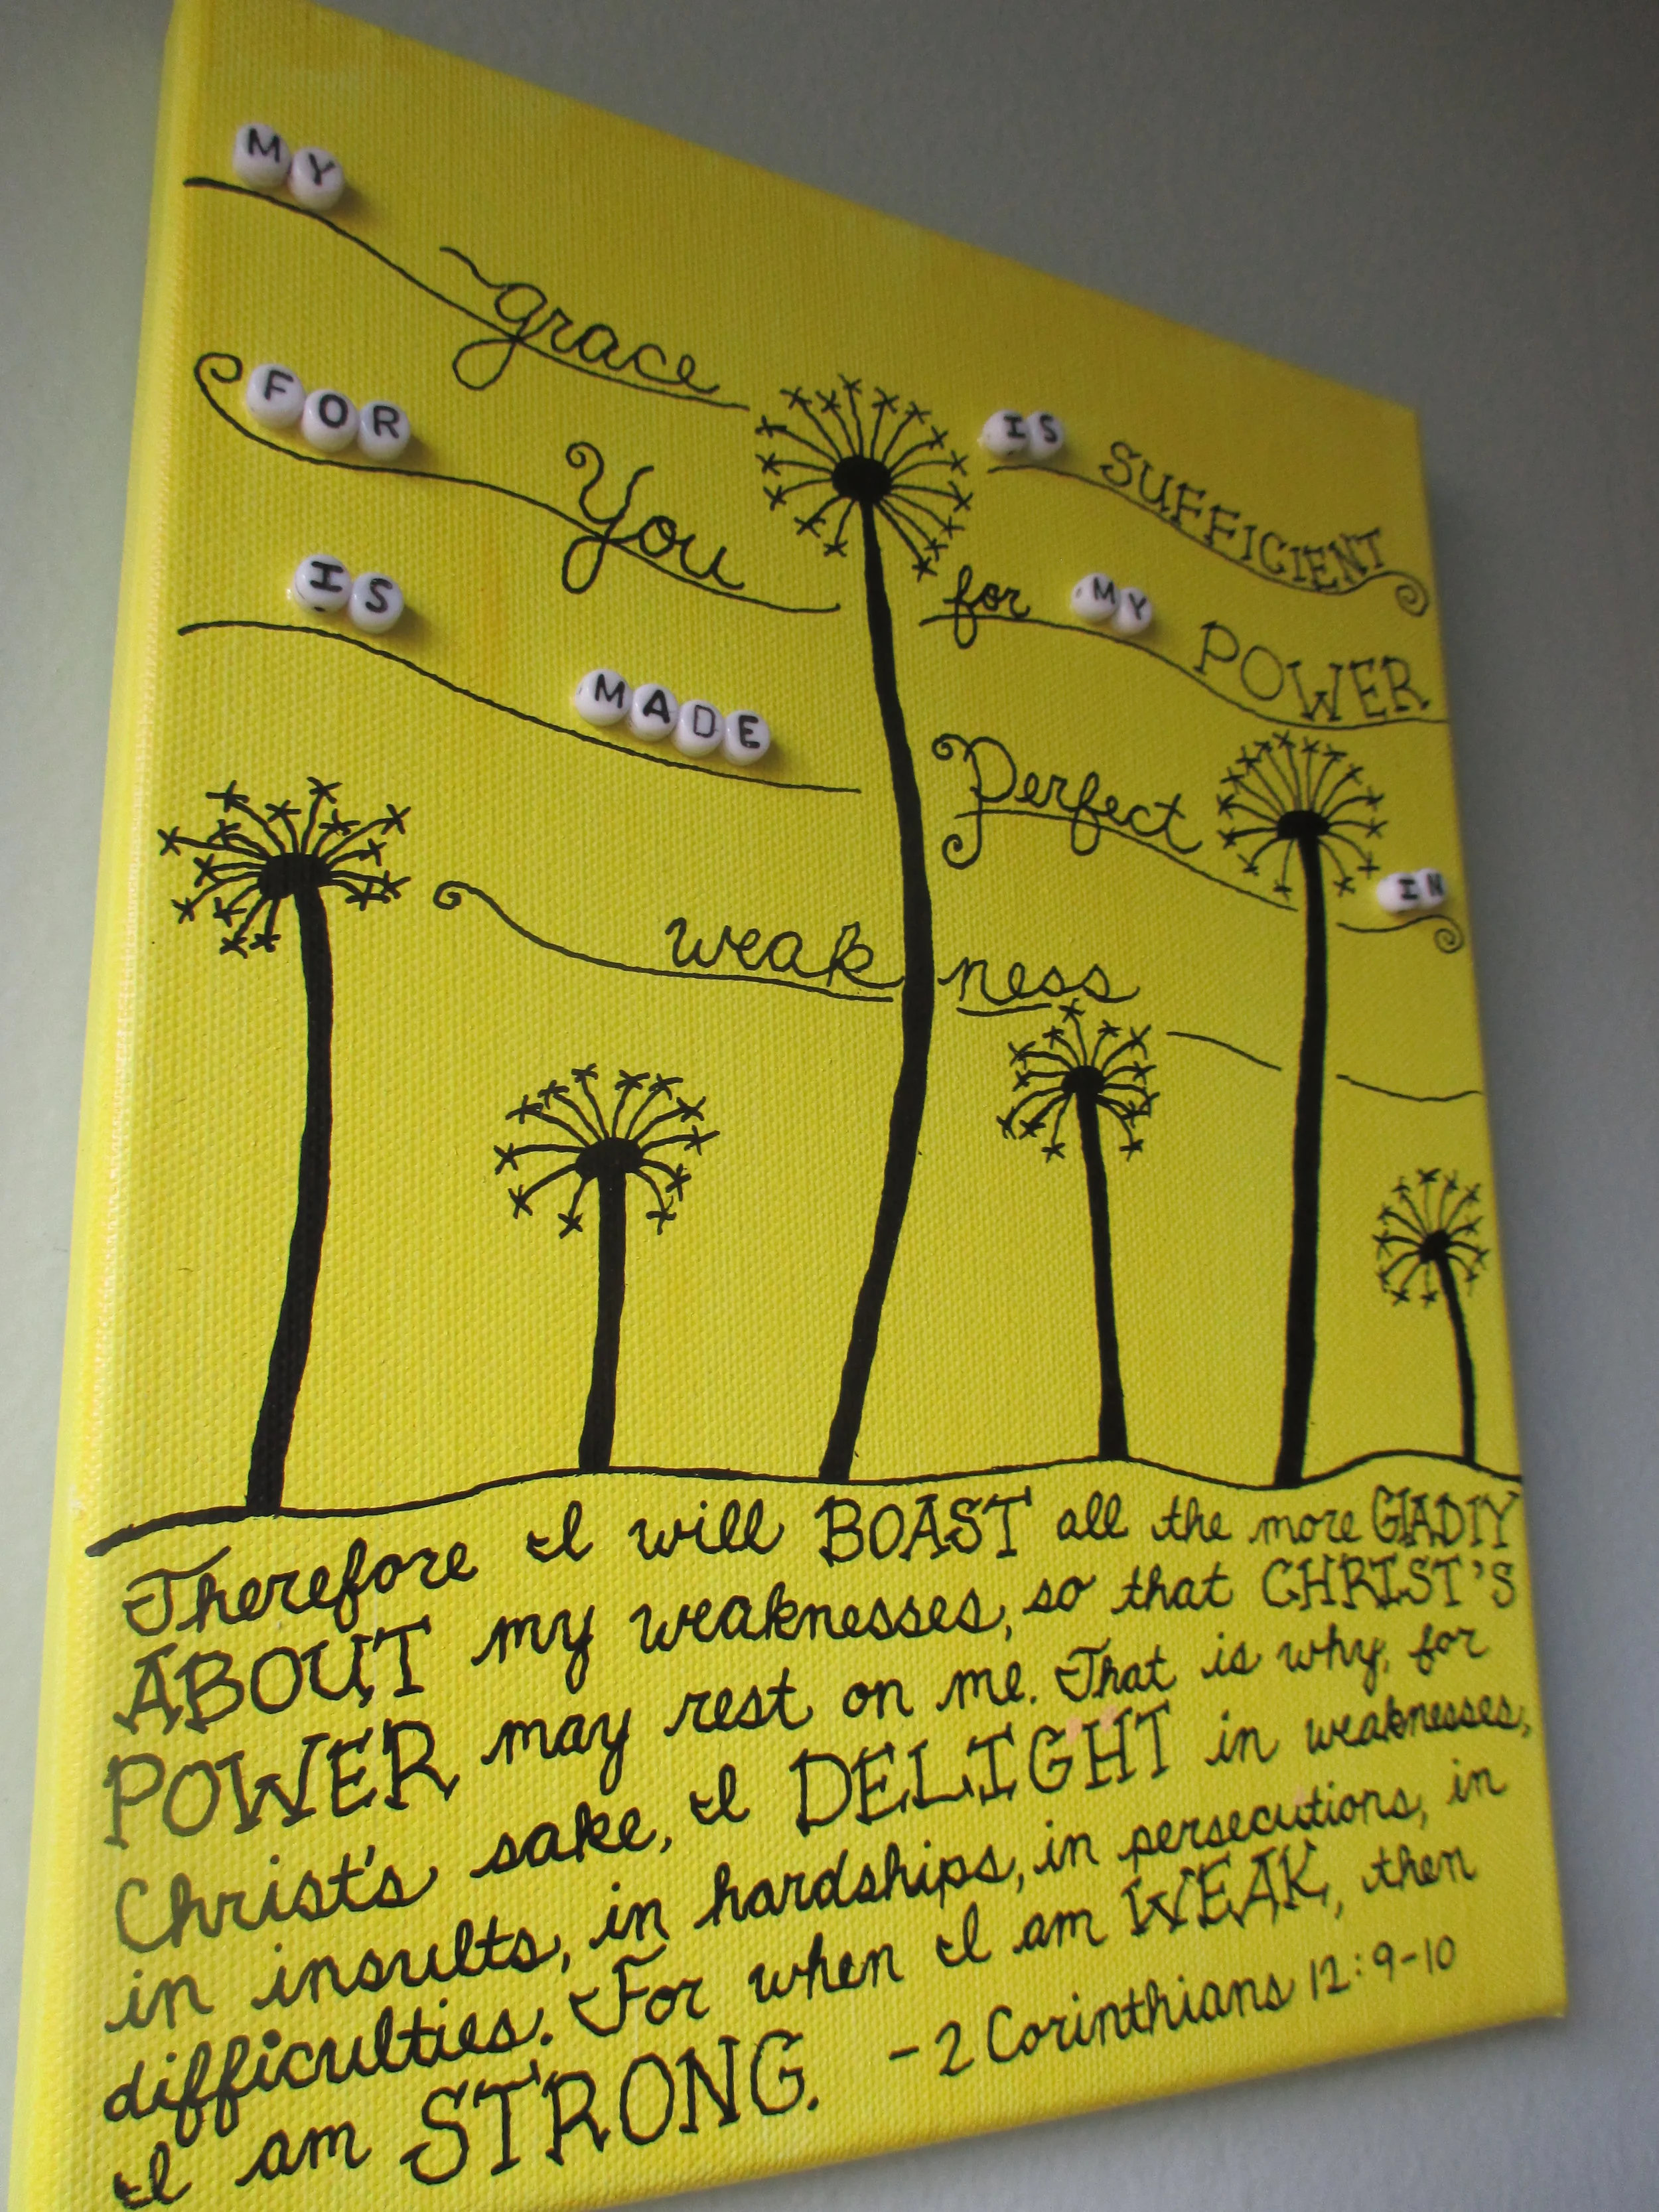 MY grace IS SUFFICIENT
FOR You for MY POWER
IS MADE Perfect IN
weakness
Therefore I will BOAST all the more GLADLY
ABOUT my weaknesses, so that CHRIST'S
POWER may rest on me. That is why, for
Christ's sake, I DELIGHT in weaknesses,
in insults, in hardships, in persecutions, in
difficulties. For when I am WEAK, then
I am STRONG. -2 Corinthians 12:9-10